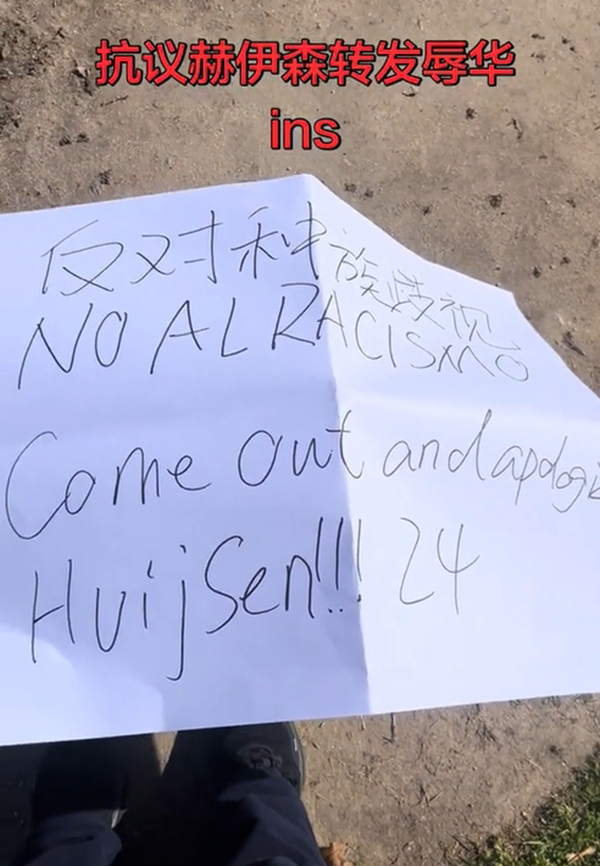 抗议赫伊森转发辱华
ins
反对种族歧视
NO AL RACISMO
Come out and apologi
Huijsen!!! 24